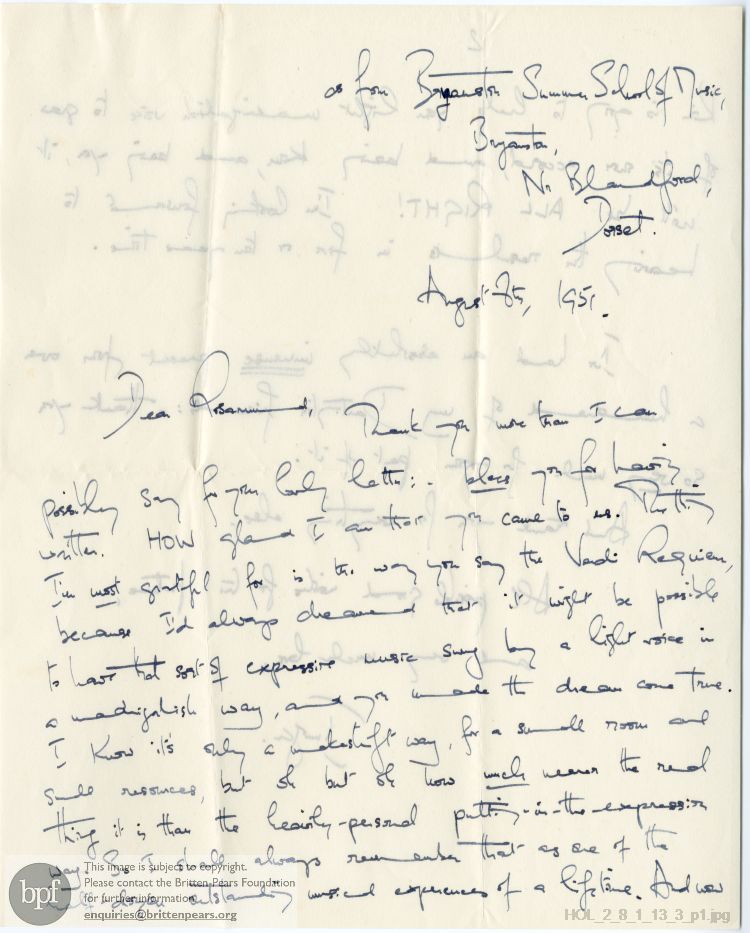 as from Bryanston Summer School of Music,
Bryanston,
Nr Blandford,
Dorset.
August 8th, 1951.
Dear Rosamund, Thank you more than I can
possibly say for your lovely letter:- bless you for having
written. HOW glad I am that you came to us. The thing
I'm most grateful for is the way you sang the Verdi Requiem,
because I'd always dreamed that it might be possible
to have that sort of expressive music sung by a light voice in
a madrigalish way, and you made the dream come true.
I know it's only a makeshift way, for a small room and
small resources, but oh but oh how much nearer the real
thing it is than the heavily-personal putting-in-the-expression
way. So I shall always remember that as one of the
half-dozen outstanding musical experiences of a lifetime. And now
bpf
This image is subject to copyright.
Please contact the Britten-Pears Foundation
for further information
enquiries@brittenpears.org
HOL_2_8_1_13_3_p1.jpg